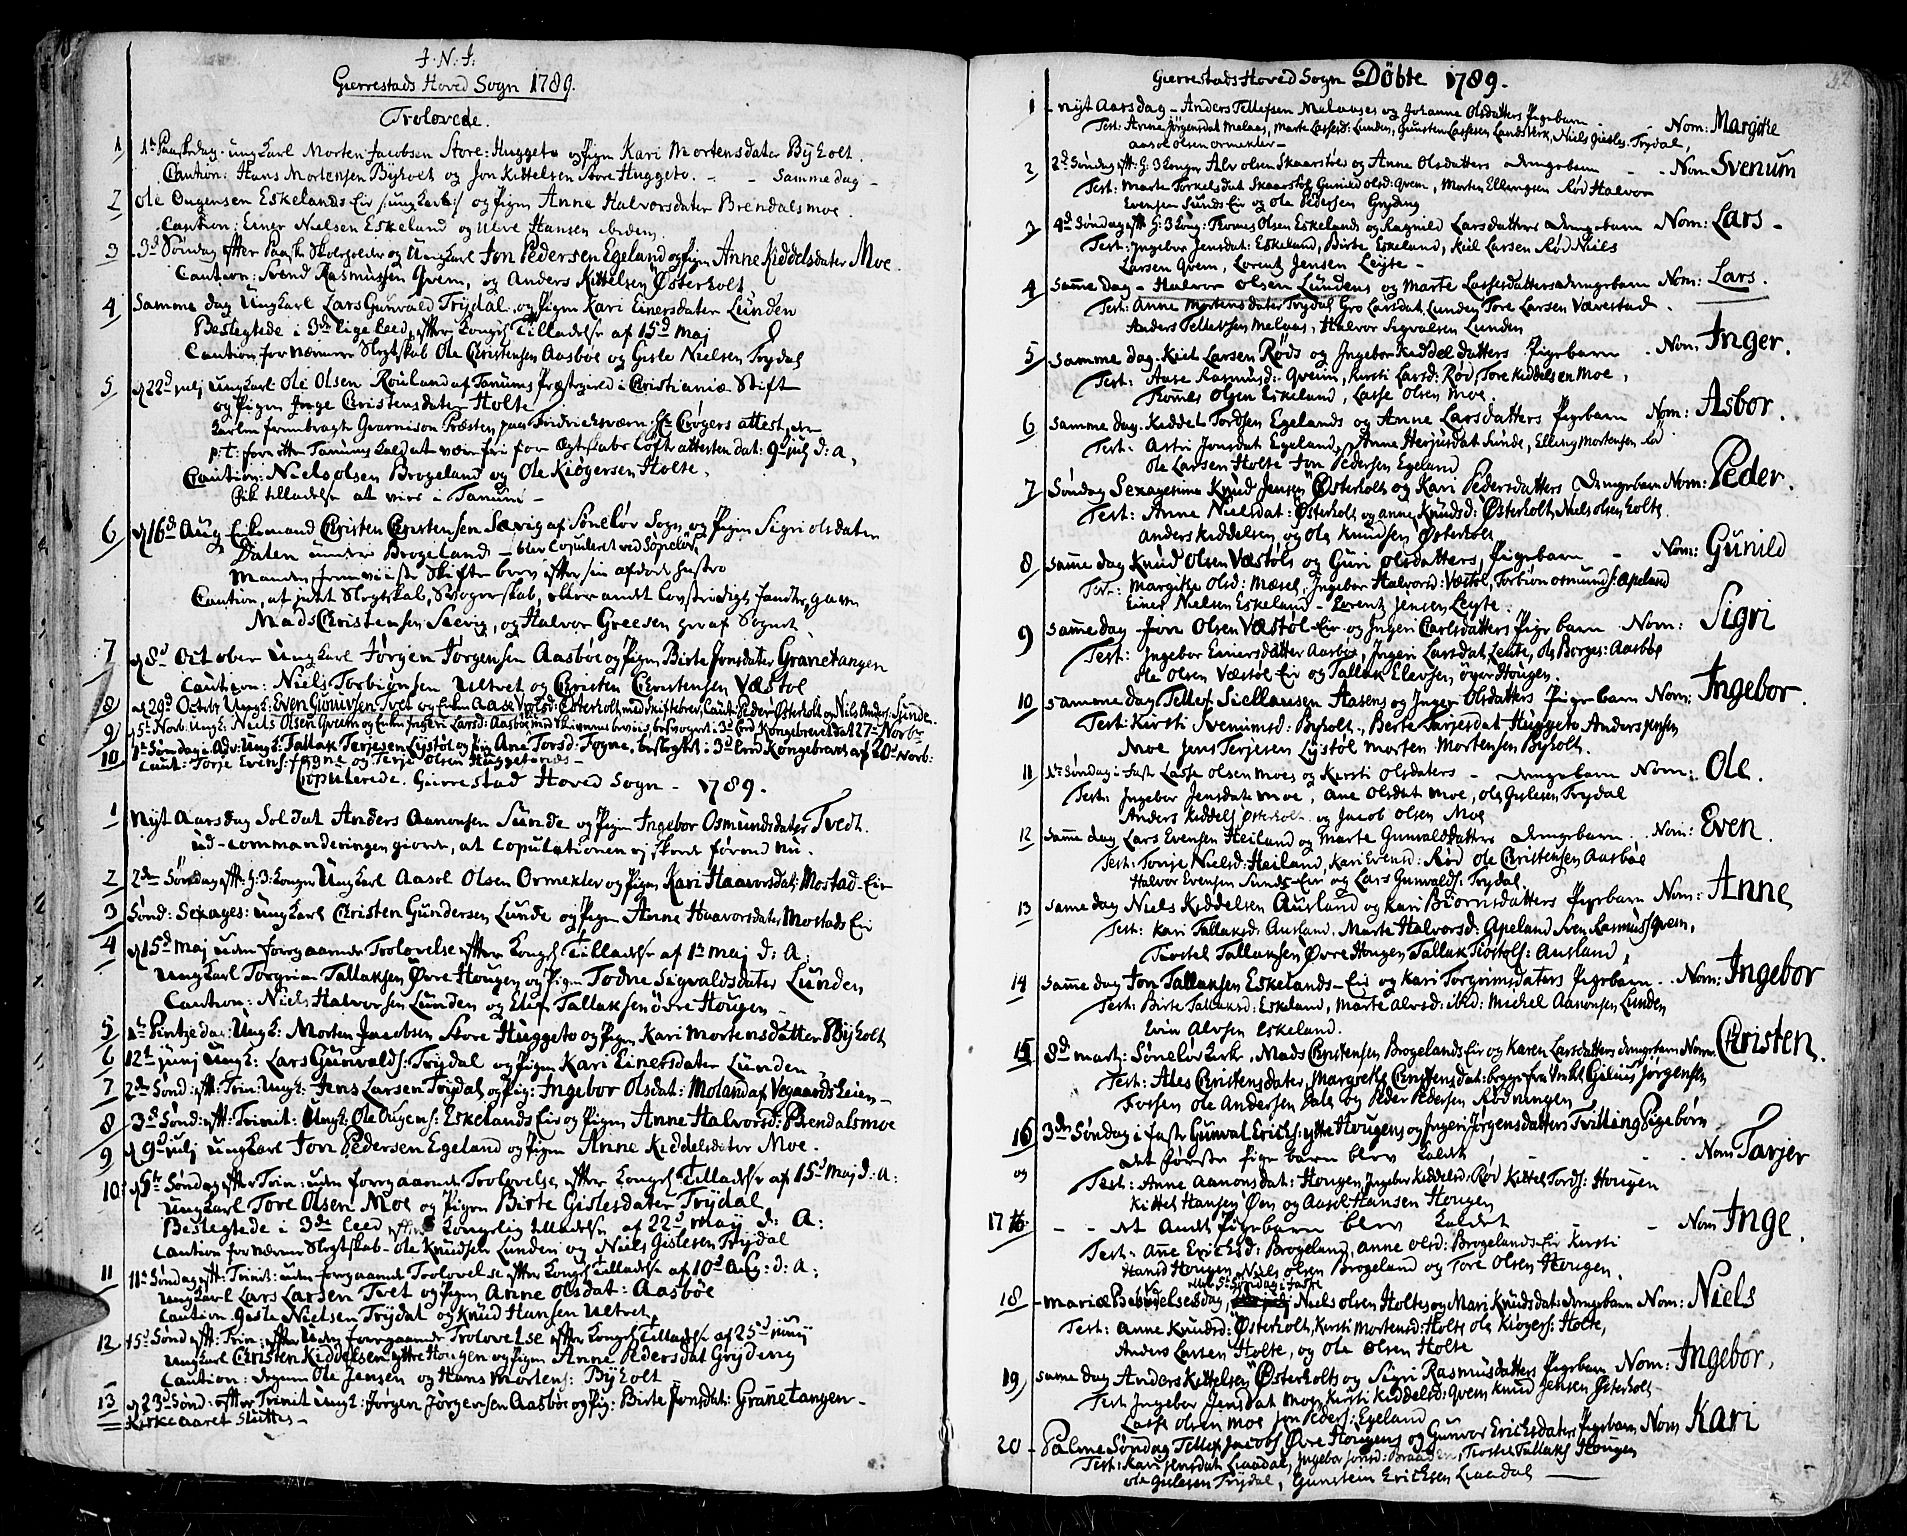 J. N. J:
Gierrestads Hoved Sogn 1789.
Trolovede.
1 1te Paaskedag. ungkarl Morten Jacobsen Store: Huggeto og Pigen Kari Mortensdater Byholt.
Caution: Hans Mortensen Byholt og Jon Kittelsen Store Huggeto. - - Samme dag -
2 Ole Ougensen Eskelands Eir /ungkarl/ og Pigen Anne Halvorsdater Brendalsmoe.
Caution: Einer Nielsen Eskeland og Ulve Hansen ibidem.
3 3d Søndag efter Paaske Skoleholder og Ungkarl Jon Pedersen Egeland og Pigen Anne Kiddelsdater Moe.
Caution: Svend Rasmussen Qvem, og Anders Kittelsen Østerholt
4 Samme dag Ungkarl Lars Gunvald Trydal og Pigen Kari Einersdater Lunden
Beslegtede i 3de lige leed, efter Kongel: Tilladelse af 15d Maj
Caution for nærmere Slegtskab Ole Christensen Aasbøe og Gisle Nielsen Trydal
5 d 22d julj ungkarl Ole Olsen Rouland af Tanums Præstegield i Christianiæ Stift
og Pigen Inge Christensdater Holte
Karlen frembragt Guarnison Præsten paa Fridrichsværn: Hr Crøgers attest,
attesten dat: 9d julj d: A.
Caution: Niels Olsen Brogeland og Ole Kiøgersen Holte.
fik tilladelse at vies i Tanum -
6 d 16d Aug Enkemand Christen Christensen Sævig af Søneløv Sogn og Pigen Sigri Olsdater
Dalen under Brogeland - blev Copuleret ved Søneløv
Manden fremviiste Skifte brev efter sin afdøde hustro
Caution, at intet Slegtskab, Svogerskab, eller andet
Mads Christensen Sævig, og Halvor Greesen
7 d 8d October Ungkarl Jørgen Jørgensen Aasbøe og Pigen Birte Jonsdater Granetangen
Caution: Niels Torbiønsen Ultvet og Christen Christensen Væstøl
8 d 29d Octobr Ungk: Even Gunufsen Tvet og Enken Aase Vrolsd: Østerholt med Skiftebrev, Caut: Peder Østerholt og Niels Anders: Sunde.
9 d 5t Novb. Ungk: Niels Olsen Qveim og Enken Ingeri Larsd: Aasbøe i 3de leed Kongebrevet dat 27d Novbr
10 1te Søndag i Adv: Ungk: Tallak Terjesen Lystøl og Pig Ane Torsd: Fogne, beslegtet i 3de leed Kongebrevet af 20d Novb:
Caut: Torje Evens: Fogne og Terje Olsen Huggetonæs -
Copulerede. Gierrestad Hoved Sogn - 1789.
1 Nyt Aarsdag Soldat Anders Aanonsen Sunde og Pigen Ingebor Osmundsdater Tvedt.
ud-commanderingen giorde, at Copulationen ej skeede førend nu.
2 2den Søndag efft: H: 3: Konger Ungkarl Aasol Olsen Ormekler og Pigen Kari Haavorsdat: Mostad-Eir
3 Sønd: Sexages: ungkarl Christen Gundersen Lunde og Pigen Anne Haavorsdater Mostads Eir
4 d 15d Maj uden foregaaende Trolovelse efter Kongel: Tilladelse af 1te maj d: A:
Ungkarl Torgrim Tallaksen Øvre Hougen og Pigen Todne Sigvaldsdater Lunden
Caution: Niels Halvorsen Lunden og Elef Tallaksen øvre Hougen -
5 1te Pintzedag: Ungk: Morten Jacobsen Store Huggeto og Pigen Kari Mortensdatter Byholt
6 12te junj Ungk: Lars Gunvalds: Trydal og Pigen Kari Einersdater Lunden
7 2den Sønd: eft: Trin: Ungk: Jens Larsen Trydal og Pig: Ingebor Olsdat: Moland af Vegaardsheien -
8 3d Sønd: eft: Trinit: Ungk: Ole Ougens: Eskelands Eir og Pigen Anne Halvorsd: Brendalsmoe
9 d 9d julj ungkarl Jon Pedersen Egeland og Pigen Anne Kiddelsdater Moe.
10 d 5te Søndag efter Trin: uden foregaaende Trolovelse, efter Kongel: Tilladelse af 15d Maj d: A:
Ungkarl Tore Olsen Moe og Pigen Birte Gislesdater Trydal
Beslegtede i 3de leed efter Kongelig tilladelse af 22d maj d: A:
Caution for nærmere Slegtskab - Ole Knudsen Lunden og Niels Gislesen Trydal
11 11te Søndag eft: Trinit: uden foregaaende Trolovelse efter Kongel: Tilladelse af 10d Aug: d: A:
Ungkarl Lars Larsen Tvet og Pigen Anne Olsdat: Aasbøe
Caution Gisle Nielsen Trydal og Knud Hansen Ultvet
12 15d Sønd eft: Trin: efter Uden foregaaende Trolovelse efter Kongel: Tilladelse af 25d junij
Ungkarl Christen Kiddelsen ytre Hougen og Pigen Anne Pedersdat Gryding
Caution: Ole Jensen og Hans Mortens: Byholt
13 d 23d Sønd: efter Trinit Ungk: Jørgen Jørgensen Aasbøe og Pig: Birte Jonsdat: Granetangen -
Kirkeaaret Sluttes -
Gierrestads Hoved Sogn Døbte 1789.
1 - Nyt Aarsdag - Anders Tellefsen Melaases og Johanne Olsdatters Pigebarn - - Nom: Margitte
Test: Anne Jørgensdat Melaas, Marte Lasses: Lunden, Gunsten Lassesen Landsverk, Niels Gisles: Trydal,
Aasol Olsen Ormekler -
2 2d Søndag eft: H: 3 Konger Alv Olsen Skaarstøls og Anne Olsdatters drengebarn - - Nom: Svenum
Test: Marte Torkelsdat Skaarstøl Gunild Olsd: Qvem, Morten Ellingsen Rød Halvor
Evensen Sunds Eir og Ole Pedersen Gryding
3 4d Søndag eft H: 3 Kong: Thomes Olsen Eskelands og Ragnild Larsdatters drengebarn Nom: Lars -
Test: Ingebor Jensdat: Eskeland, Birte Eskeland, Kiel Larsen Rød Niels
Larsen Qvem, Lorentz Jensen Leyte -
4 Samme dag - Halvor Olsen Lundens og Marte Lassesdatters drengebarn Nom: Lars.
Test: Anne Mortensdater Trydal Gro Larsdat, Lunden Tore Larsen Værestad.
Anders Tellefsen Melaas, Halvor Sigvalsen Lunden
5 Samme dag. Kiel Larsen Røds og Ingebor Kiddelsdatters Pigebarn - Nom: Inger.
Test: Aase Rasmusd: Qveim, Kirsti Larsd: Rød, Tore Kiddelsen Moe,
Thomes Olsen Eskeland, Lasse Olsen Moe.
6 Samme dag. Kiddel Tordsen Egelands og Anne Larsdatters Pigebarn Nom: Asbor.
Test: Astri Jonsdat Egeland, Anne Herjusdat Sunde, Elling Mortensen Rød
Ole Larsen Holte Jon Pedersen Egeland
7 Søndag Sexagesima Knud Jensen Østerholts og Kari Pedersdatters drengebarn Nom: Peder.
Test: Anne Nielsdat: Østerholt og Anne Knudsd: Østerholt, Niels Olsen Holte.
Anders Kiddelsen og Ole Knudsen Østerholt
8 Samme dag Knud Olsen Væstøls og Guri Olsdatters Pigebarn - Nom: Gunild
Test: Margitte Olsd: Mæsel, Ingebor Halvorsd: Væstøl, Torbiøn Osmunds: Apeland
Einer Nielsen Eskeland - Lorentz Jensen Leyte.
9 Samme dag - Jon Olsen Væstøl-Eir og Ingeri Carlsdatters Pigebarn - Nom: Sigri
Test: Ingebor Einersdatter Aasbøe, Ingeri Larsdat Leyte, Ole Borges: Aasbøe
Ole Olsen Væstøl Eir og Tallak Elevsen, øvre Hougen.
10 Samme dag Tellef Siellausen Aasens og Inger Olsdatters Pigebarn Nom: Ingebor.
Test: Kirsti Svenumsd: Byholt, Berte Tarjesdat Huggeto Anders Jensen
Moe Jens Terjesen Lystøl Morten Mortensen Byholt.
11 1te Søndag i Fast: Lasse Olsen Moes og Kirsti Olsdaters - drengebarn Nom: Ole.
Test: Ingebor Jensdat Moe, Ane Olsdat Moe, Ole Gislesen Trydal
Anders Kiddels Østerholt og Jacob Olsen Moe
12 Samme dag Lars Evensen Heiland og Marte Gunvaldsdatters drengebarn. Nom: Even
Test: Tonje Nielsd: Heiland, Kari Evensd: Rød Ole Christensen Aasbøe
Halvor Evensen Sunds-Eir og Lars Gunvalds: Trydal.
13 Samme dag Niels Kiddelsen Ausland og Kari Biørnsdatters Pigebarn Nom: Anne
Test: Kari Tallaksd: Ausland. Marte Halvorsd: Apeland Sven Rasmus: Qvem,
Tiostel Tallaksen Øvre Hougen Tallak Tiostols: Ausland,
14 Samme dag Jon Tallaksen Eskelands-Eir og Kari Torgrimsdaters Pigebarn - Nom: Ingebor
Test: Birte Tallaksd: Eskeland, Marte Alvsd: ibid: Michel Aanonsen Lunden
Even Alvsen Eskeland.
15 8d mart: Sønelør Kirke, Mads Christensen Brogelands Eir og Karen Larsdatters drengebarn Nom: Christen.
Test: Ales Christensdater, Margrethe Christensdat: begge fra Gilius Jørgensen
Fossen Ole Andersen Dale og Peder Pedersen Rødningen
16 3de Søndag i Faste Gunval Erichs: ytre Hougens og Ingeri Jørgensdatters Tvilling Pigebørn
og det første Pigebarn blev kaldet - - - Nom: Tarjer
Test: Anne Aanonsdat: Hougen, Ingebor Kiddelsd: Rød Kittel Tords: Hougen
Kittel Hansen Øen og Aasol Hansen Hougen
17 - - det Andet Pigebarn blev kaldet - - Nom Inge.
Test: Ane Erichsd: Brogeland, Anne Olsd: Brogelands-Eir Kirsti
Hansd Hougen, Niels Olsen Brogeland og Tore Olsen Hougen.
5te Søndag i Faste
18 - Mariæ Bebudelsesdag, Niels Olsen Holtes og Mari Knudsdat: drengebarn Nom: Niels
Test: Anne Knudsd: Østerholt, Kirsti Mortensd: Holte Ole Kiøgers: Holte,
Anders Larsen Holte, og Ole Olsen Holte
19 Samme dag Anders Kittelsen Østerholts og Sigri Rasmusdatters Pigebarn Nom: Ingebor.
Test Ingebor Jensdat Moe, Kirsti Kiddelsd: Qvem Knud Jensen Østerholt
Lasse Olsen Moe Jon Peders: Egeland
20 - Palme Søndag Tellef Jacobs Øvre Hougens og Gunvor Erichsdaters Pigebarn Nom Kari
Test: Kari Jensdat Liaadal, Ingebor Jonsd: Braaden, Tiostel Tallaks Hougen
Ole Gislesen Trydal, Gunstein Erichsen Liaadal